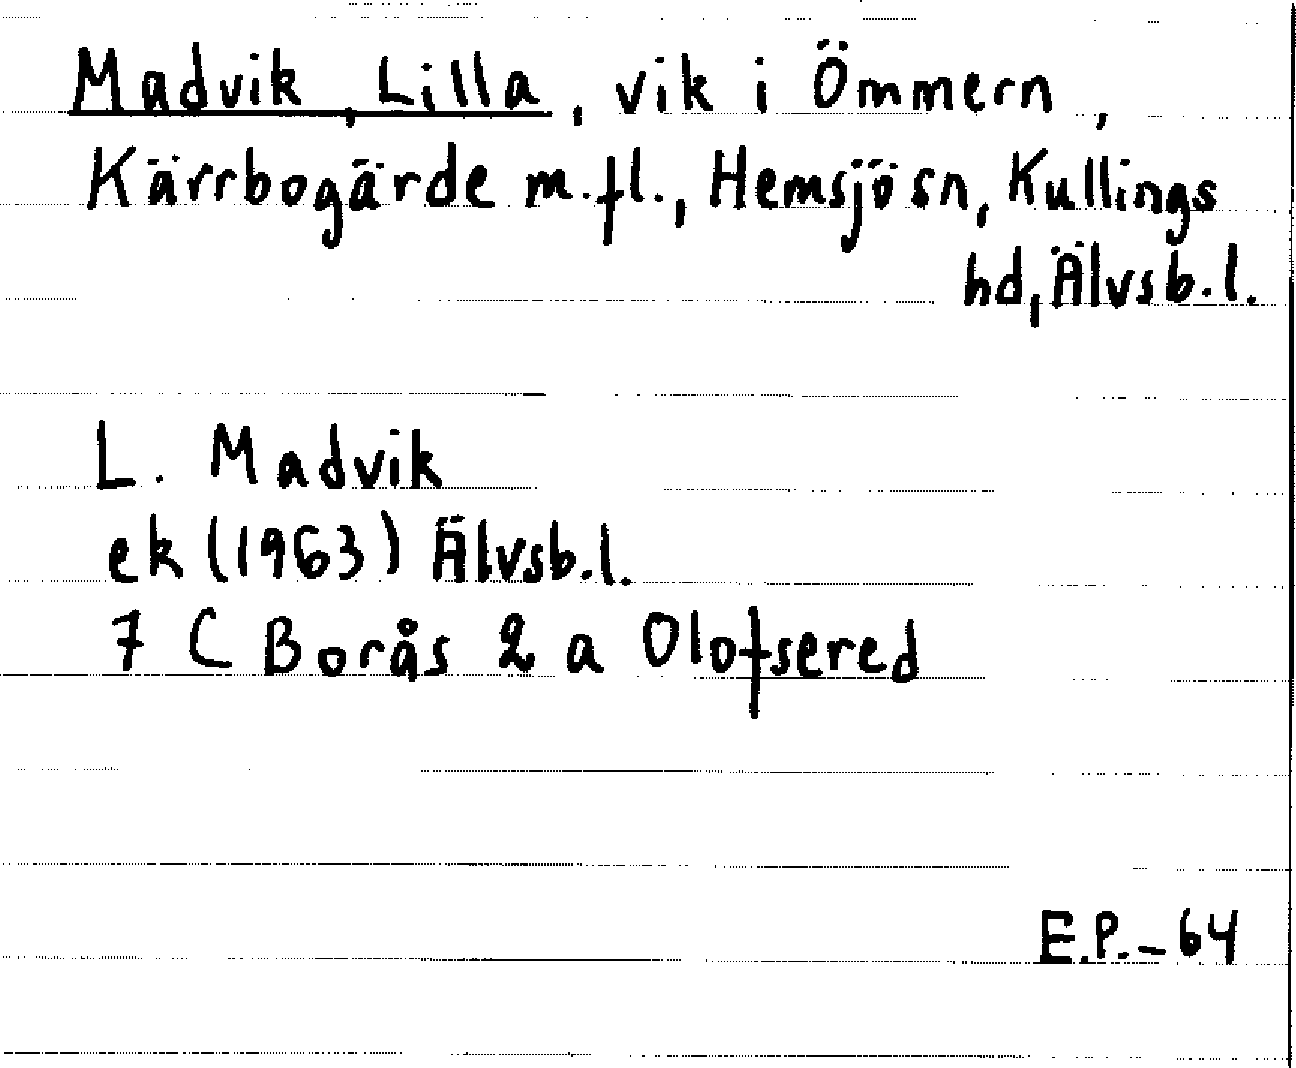 Madvik, Lilla, vik i Ömmern,
Kärrbogärde m.fl., Hemsjö sn, Kullings
hd, Älvsb.l.
L. Madvik
ek (1963) Älvsb.l.
7 C Borås 2 a Olofsered
E.P.-64